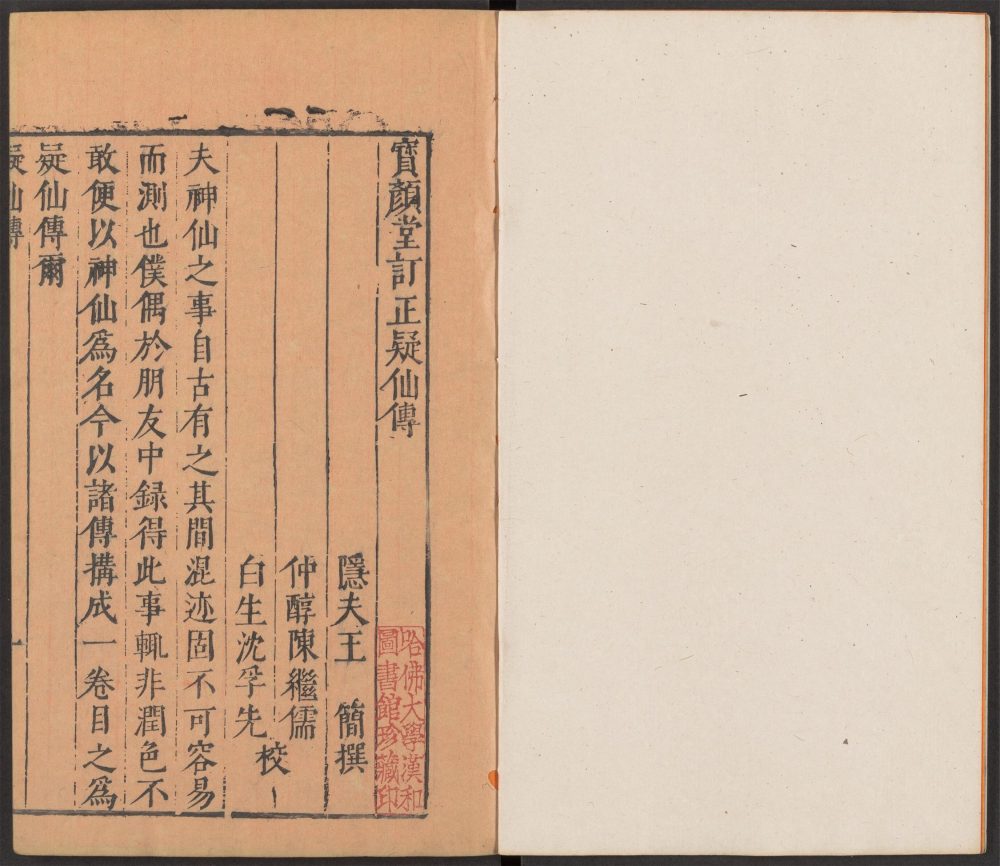 寳顏堂訂正疑仙傳
哈佛大學漢和
圖書館珍藏印
隱夫王　簡撰
仲醇陳繼儒
白生沈孚先
校
夫神仙之事自古有之其間混迹固不可容易
而測也僕偶於朋友中録得此事輒非潤色不
敢便以神仙爲名今以諸傳搆成一卷目之爲
疑仙傳爾
疑仙傳
一